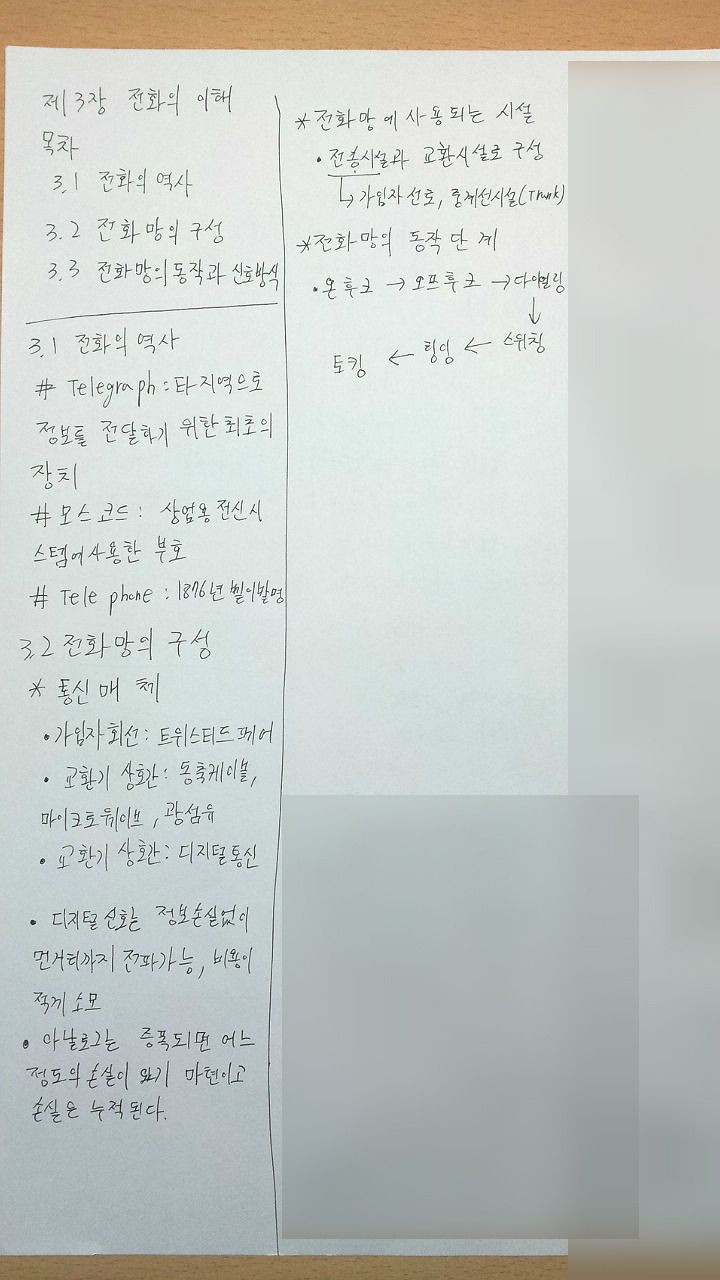 제3장 전화의 이해
목차
3.1 전화의 역사
3.2 전화망의 구성
3.3 전화망의 동작과 신호방식
3.1 전화의 역사
# Telegraph : 타지역으로
정보를 전달하기 위한 최초의
장치
# 모스코드 : 상업용 전신시
스템에 사용한 부호
# Tele phone : 1876년 벨이발명
3.2 전화망의 구성
* 통신매체
• 가입자 회선 : 트위스티드 페어
• 교환기 상호간 : 동축케이블,
마이크로웨이브, 광섬유
• 교환기 상호간 : 디지털통신
• 디지털 신호는 정보손실없이
먼거리까지 전파가능, 비용이
적게 소모
• 아날로그는 증폭되면 어느
정도의 손실이 있기 마련이고
손실은 누적된다.
* 전화망에 사용되는 시설
• 전송시설과 교환시설로 구성
↳ 가입자 선로, 중계선시설(Trunk)
* 전화망의 동작 단계
• 온후크 → 오프후크 → 다이얼링
↓
토킹 ← 링잉 ← 스위칭